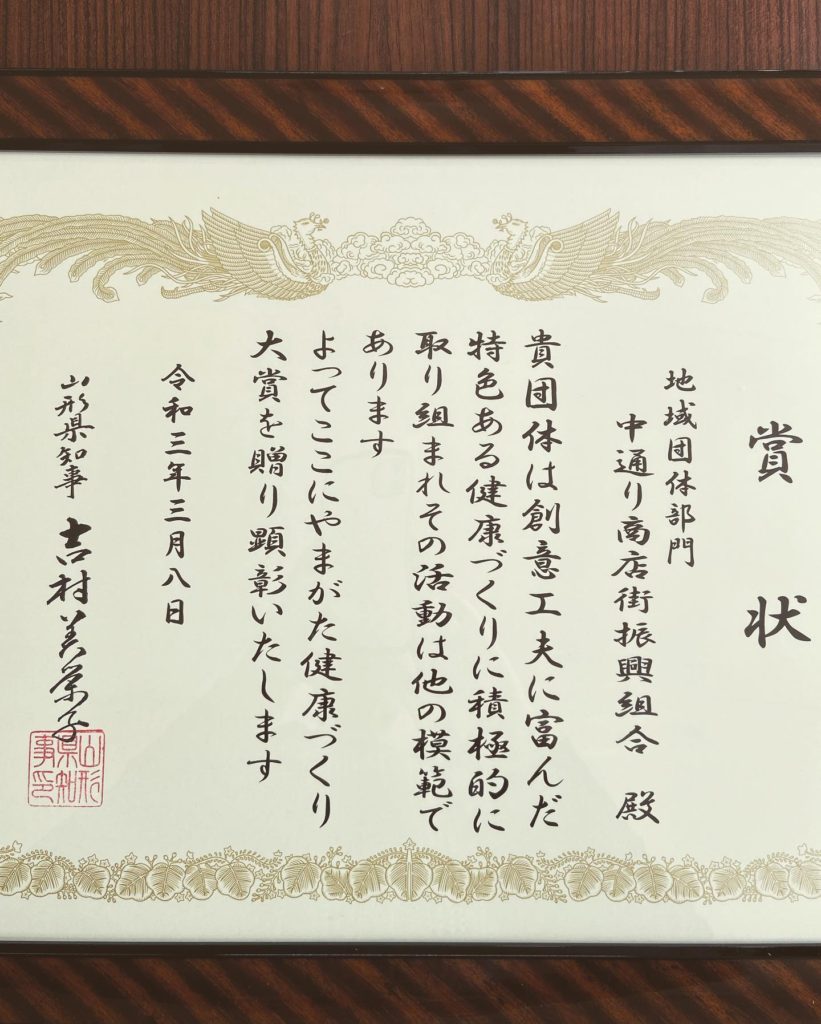 賞状
地域団体部門
中通り商店街振興組合 殿
貴団体は創意工夫に富んだ
特色ある健康づくりに積極的に
取り組まれその活動は他の模範で
あります
よってここにやまがた健康づくり
大賞を贈り顕彰いたします
令和三年三月八日
山形県知事 吉村美栄子
山形県知事印